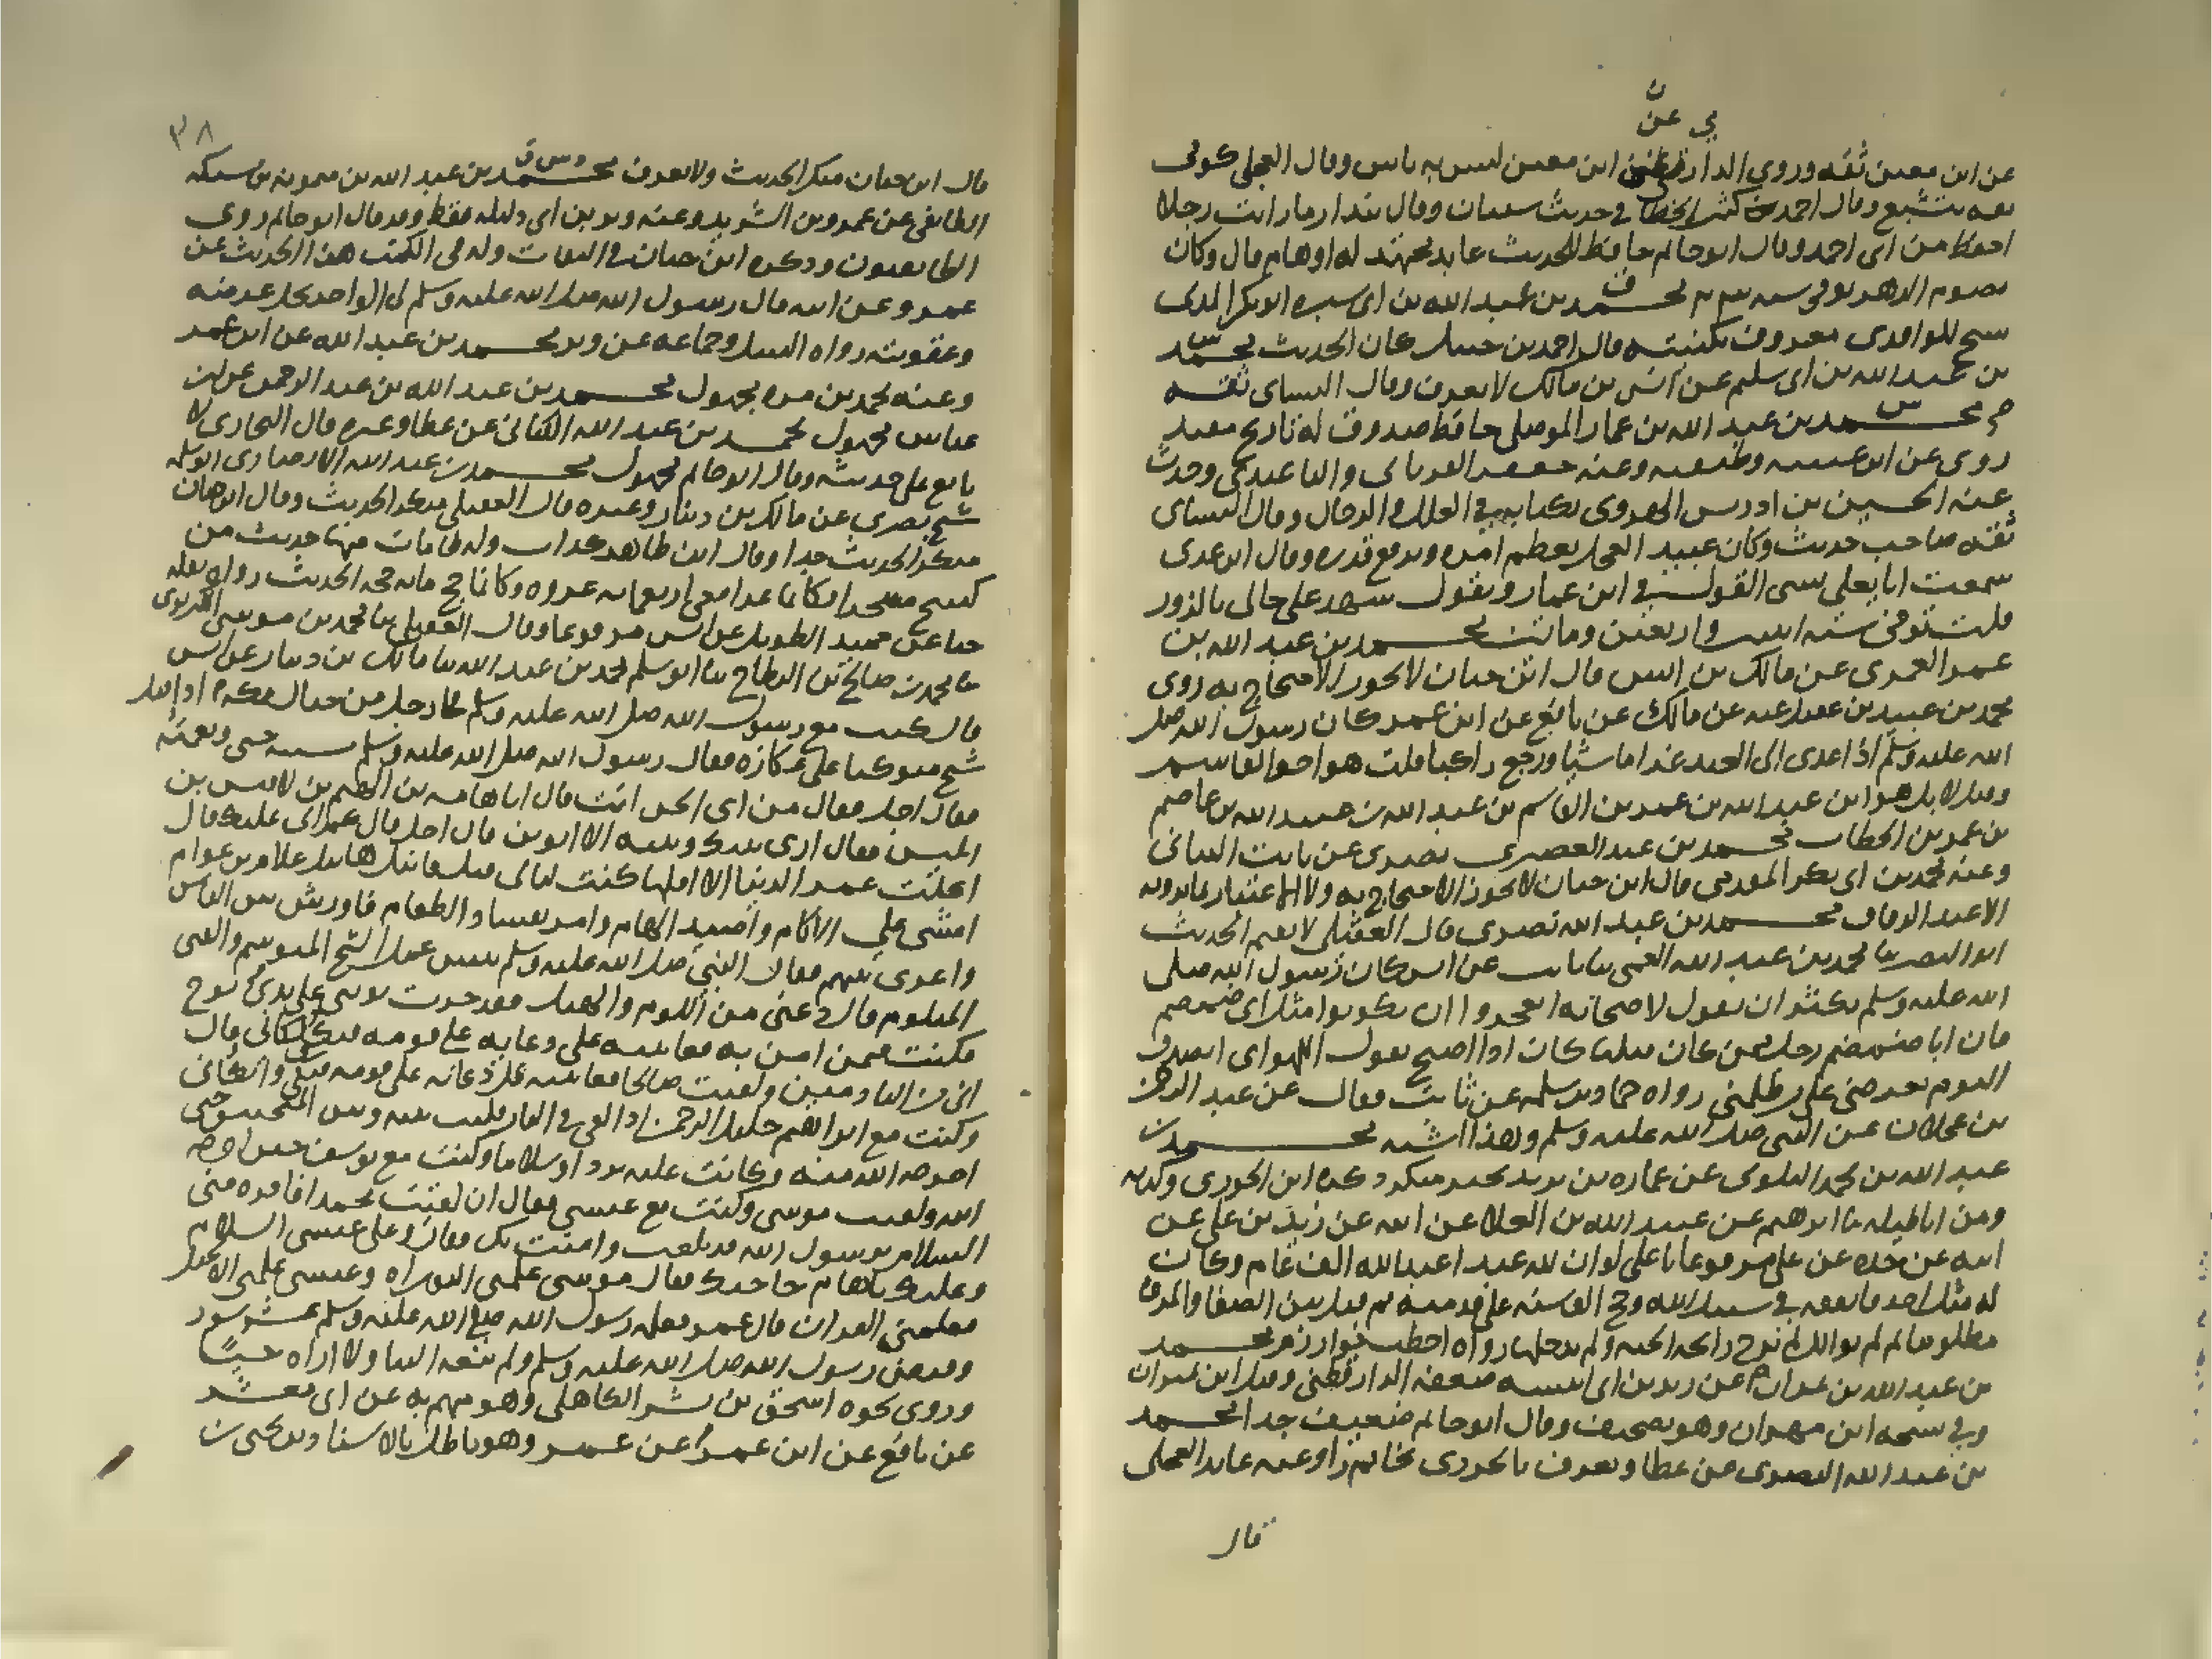 ن
ني عن
عن ابن معين ثقه وروي الدارقطني ابن معين ليس به باس وقال العجلي كوفي
ثقه يتشيع وقال احمد كثير الخطا في حديث سفيان وقال بندار ما رايت رجلا
احفظ من ابي احمد وقال ابو حاتم حافظ للحديث عابد مجتهد له اوهام قال وكان
يصوم الدهر توفي سنه محمد بن عبد الله بن ابي سبره ابو بكر المدني
شيخ للواقدي معروف بكنيته قال احمد بن حنبل كان الحديث محمد
بن عبد الله بن ابي سليم عن انس بن مالك لا يعرف وقال النساي ثقه
محمد بن عبد الله بن عمار الموصلي حافظ صدوق له تاريخ مفيد
روي عن ابن عيينه وطبقته وعنه جعفر الفريابي والباغندي وحدث
عنه الحسين بن ادريس الهروي بكتابه في العلل والرجال وقال النساي
ثقه صاحب حديث وكان عبيد العجل يعظم امره ويرفع قدره وقال ابن عدي
سمعت ابا يعلي يسي القول في ابن عمار ويقول شهد علي خالي بالزور
قلت توفي سنه اثنتين واربعين ومائتين محمد بن عبد الله بن
عمر العمري عن مالك بن انس قال ابن حبان لا يجوز الاحتجاج به روي
محمد بن عبيد بن عقيل عنه عن مالك عن نافع عن ابن عمر كان رسول الله صلي
الله عليه وسلم اذا غدي الي العيد غدا ماشيا ورجع راكبا قلت هو اخو القاسم
وقيل لا بل هو ابن عبد الله بن عمر بن القاسم بن عبد الله بن عبيد الله بن عاصم
بن عمر بن الخطاب محمد بن عبد العصري بصري عن ثابت البناني
وعنه محمد بن ابي بكر المقدمي قال ابن حبان لا يجوز الاحتجاج به ولا الاعتبار بما يرويه
الا عند الوفاق محمد بن عبد الله بصري قال العقيلي لا يقيم الحديث
ابو النصر ثنا محمد بن عبد الله العمي ثنا ثابت عن انس كان رسول الله صلي
الله عليه وسلم يكثر ان يقول لاصحابه اتعجزوا ان تكونوا مثل ابي ضمضم
فان ابا ضمضم رجل ممن كان قبلنا كان اذا اصبح يقول اللهم اني اتصدق
اليوم بعرضي علي من ظلمني رواه حماد بن سلمه عن ثابت فقال عن عبد الرحمن
بن عجلان عن النبي صلي الله عليه وسلم وهذا اشبه محمد بن
عبد الله بن محمد البلوي عن عماره بن يزيد بخبر منكر ذكره ابن الجوزي وكذبه
ومن اباطيله ثنا ابراهيم عن عبيد الله بن العلا عن ابيه عن زيد بن علي عن
ابيه عن جده عن علي مرفوعا يا علي لو ان لله عبدا عبد الله الف عام وكان
له مثل احد فانفقه في سبيل الله وحج الف سنه علي قدميه ثم قتل بين الصفا والمروه
مظلوما ثم لم يوالك لم يرح رائحه الجنه ولم يدخلها رواه اخطب خوارزم محمد
بن عبد الله بن عن زيد بن ابي انيسه ضعفه الدارقطني وقيل ابن نمران
وفي نسخه ابن مهران وهو تصحيف وقال ابو حاتم ضعيف جدا محمد
بن عبد الله البصري عن عطا ويعرف بالجردي وعنه عابد العجلي
قال
٣٨
د س ق
قال ابن حبان منكر الحديث ولا يعرف محمد بن عبد الله بن ميمون بن مسيكه
الطايفي عن عمرو بن الشريد وعنه وبر بن ابي دليله فقط وقد قال ابو حاتم روي
الطايفيون وذكره ابن حبان في الثقات وله في الكتب هذا الحديث عن
عمرو عن ابيه قال رسول الله صلي الله عليه وسلم لي الواجد يحل عرضه
وعقوبته رواه النبيل وجماعه عن وبر محمد بن عبد الله عن ابن عمر
وعنه محمد بن مره مجهول محمد بن عبد الله بن عبد الرحمن عن ابن
عباس مجهول محمد بن عبد الله الكناني عن عطا وغيره قال البخاري لا
يتابع علي حديثه وقال ابو حاتم مجهول محمد بن عبد الله الانصاري ابو سلمه
شيخ بصري عن مالك بن دينار وغيره قال العقيلي منكر الحديث وقال ابن حبان
منكر الحديث جدا وقال ابن طاهر كذاب وله طامات منها حديث من
كسح مسجدا فكانما غزا معي اربعمايه غزوه وكانما حج مايه حجه الحديث رواه
عن حميد الطويل عن انس مرفوعا وقال العقيلي ثنا محمد بن موسي
ثنا محمد بن صالح بن البطاح ثنا ابو سلمه محمد بن عبد الله ثنا مالك بن دينار عن انس
قال كنت مع رسول الله صلي الله عليه وسلم خارجا من جبال مكه اذ اقبل
شيخ متوكيا علي عكازه فقال رسول الله صلي الله عليه وسلم مشيه جني ونغمته
فقال اجل فقال من اي الجن انت قال انا هامه بن الهيم بن لاقيس بن
ابليس فقال اري بينك وبينه الا ابوين قال اجل قال كم اتي عليك قال
اكلت عمر الدنيا الا اقلها كنت ليالي قتل قابيل هابيل غلام ابن اعوام
امشي علي الاكام واصيد الهام وامر بفساد الطعام واورش بين الناس
واغري بينهم فقال النبي صلي الله عليه وسلم بيس عمل الشيخ المتوسم والفتي
المتلوم قال دعني من اللوم والهبل فقد جرت توبتي علي يدي نوح
فكنت فيمن امن به فعاتبته علي دعايه علي قومه فبكي وابكاني قال
اني من النادمين ولقيت صالحا فعاتبته علي دعايه علي قومه فبكي وابكاني
وكنت مع ابراهيم خليل الرحمن اذ القي في النار فكنت بينه وبين المنجنيق حتي
اخرجه الله منه وكانت عليه بردا وسلاما وكنت مع يوسف حتي اخرجه
الله ولقيت موسي وكنت مع عيسي فقال ان لقيت محمدا فاقره مني
السلام يا رسول الله قد بلغت وامنت بك فقال وعلي عيسي السلام
وعليك يا هام حاجتك فقال موسي علمني التوراه وعيسي علمني الانجيل
فعلمني القران قال عمر فعلمه رسول الله صلي الله عليه وسلم عشر سور
وقبض رسول الله صلي الله عليه وسلم ولم ينعه الينا ولا اراه حيا
وروي نحوه اسحق بن بشر الكاهلي وهو متهم به عن ابي معشر
عن نافع عن ابن عمر عن عمر وهو باطل بالاسنادين يحيي بن